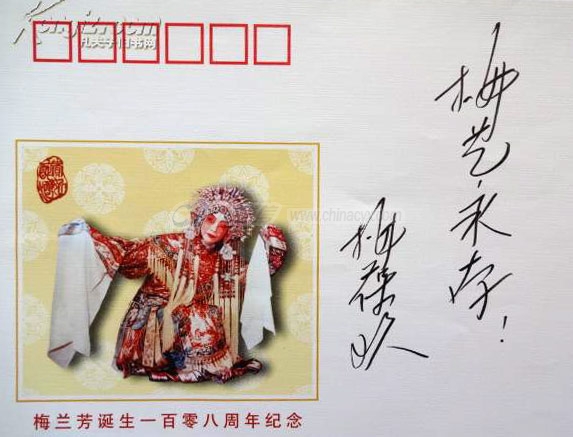 Kongfz.com
孔夫子旧书网
梅艺永存!
梅葆玖
www.chinacyx.com
梅兰芳诞生一百零八周年纪念